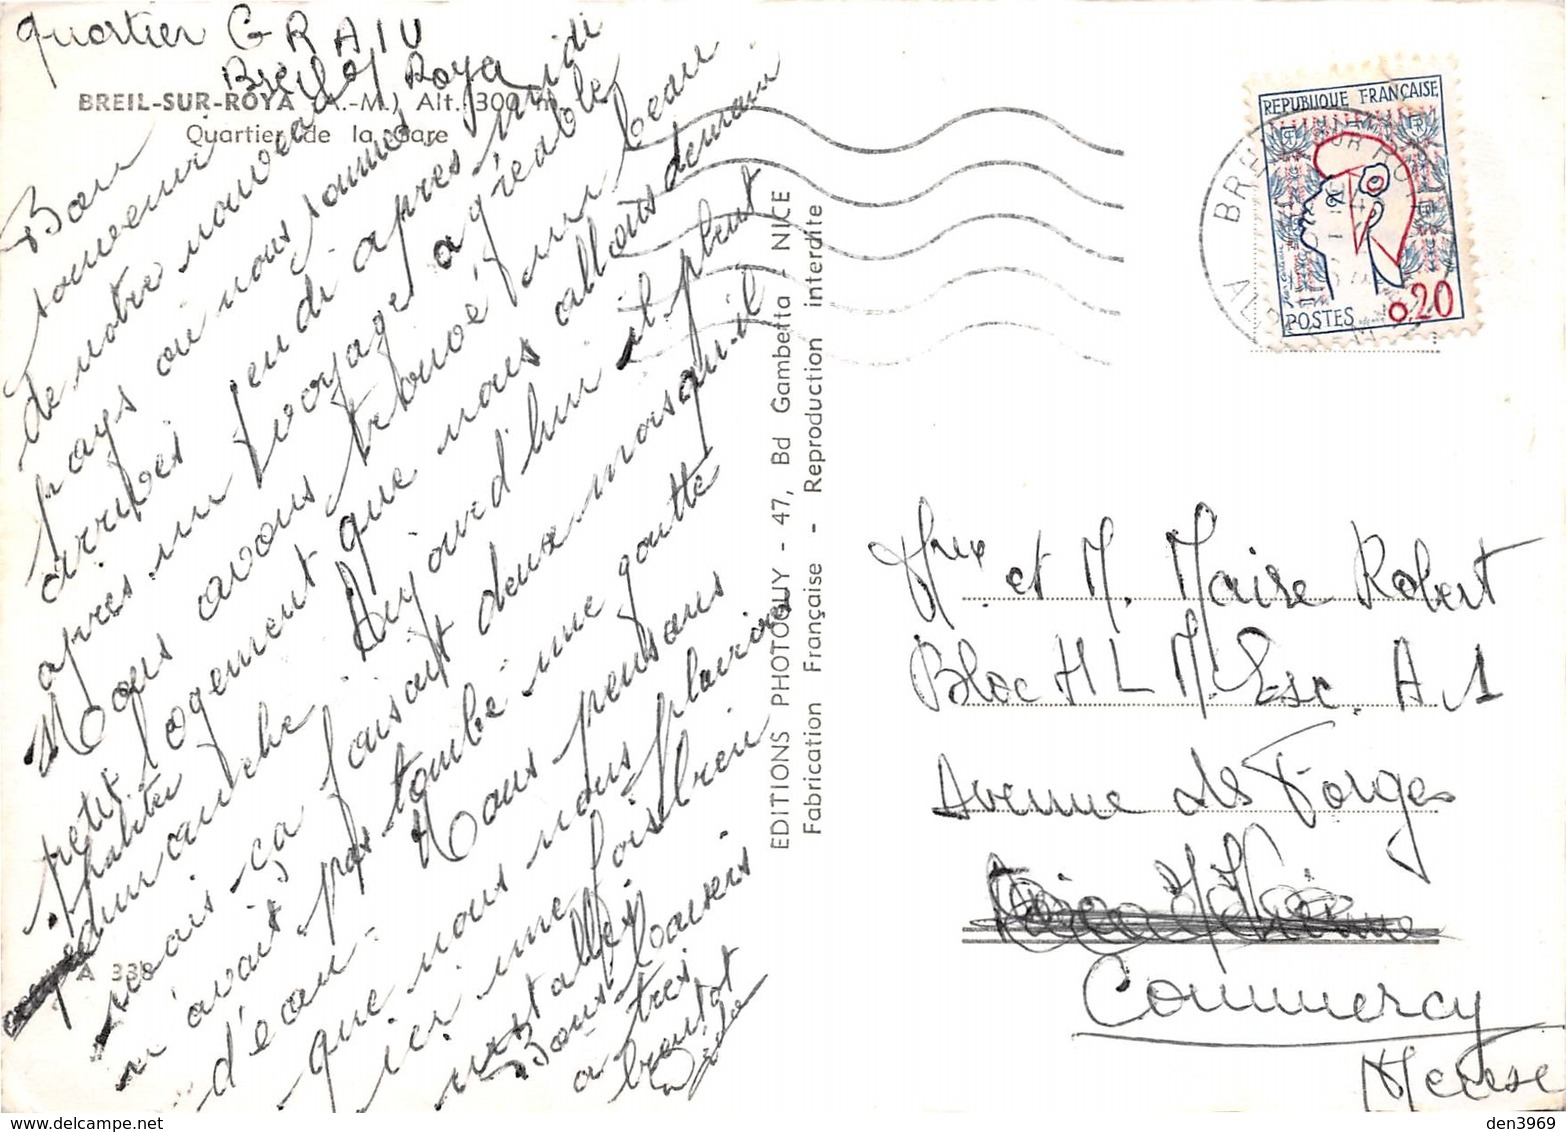 quartier GRAIU
Breil s/ Roya
BREIL-SUR-ROYA (A.-M.) Alt. 300 m.
Quartier de la Gare
Bon
souvenir
de notre nouveau
pays où nous sommes
arrivés jeudi après midi
après un voyage agréable
Nous avons trouvé un beau
petit logement que nous allons demain
habiter
dimanche Aujourd'hui il pleut
mais ça faisait deux mois qu'il
n'avait pas tombé une goutte
d'eau. Nous pensons
que nous nous plairons
ici une fois bien
installés
Bons baisers
à très
bientôt
A 338
EDITIONS PHOTOGUY - 47, Bd Gambetta NICE
Fabrication Française - Reproduction interdite
REPUBLIQUE FRANÇAISE
POSTES 0,20
BREIL SUR ROYA
ALPES
Mme et M. Maire Robert
Bloc HLM Esc. A 1
Avenue des Forges
Commercy
Meuse
www.delcampe.net
den3969